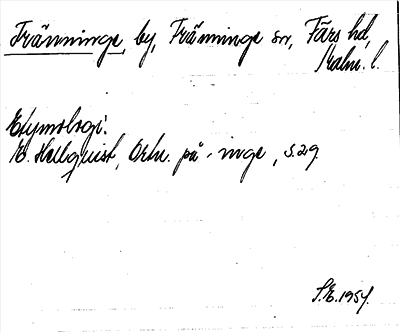 Tränninge, by, Tränninge sn, Färs hd,
Malm. l.
Etymologi:
E. Hellquist, Ortn. på -inge, s. 29.
S.E. 1954.